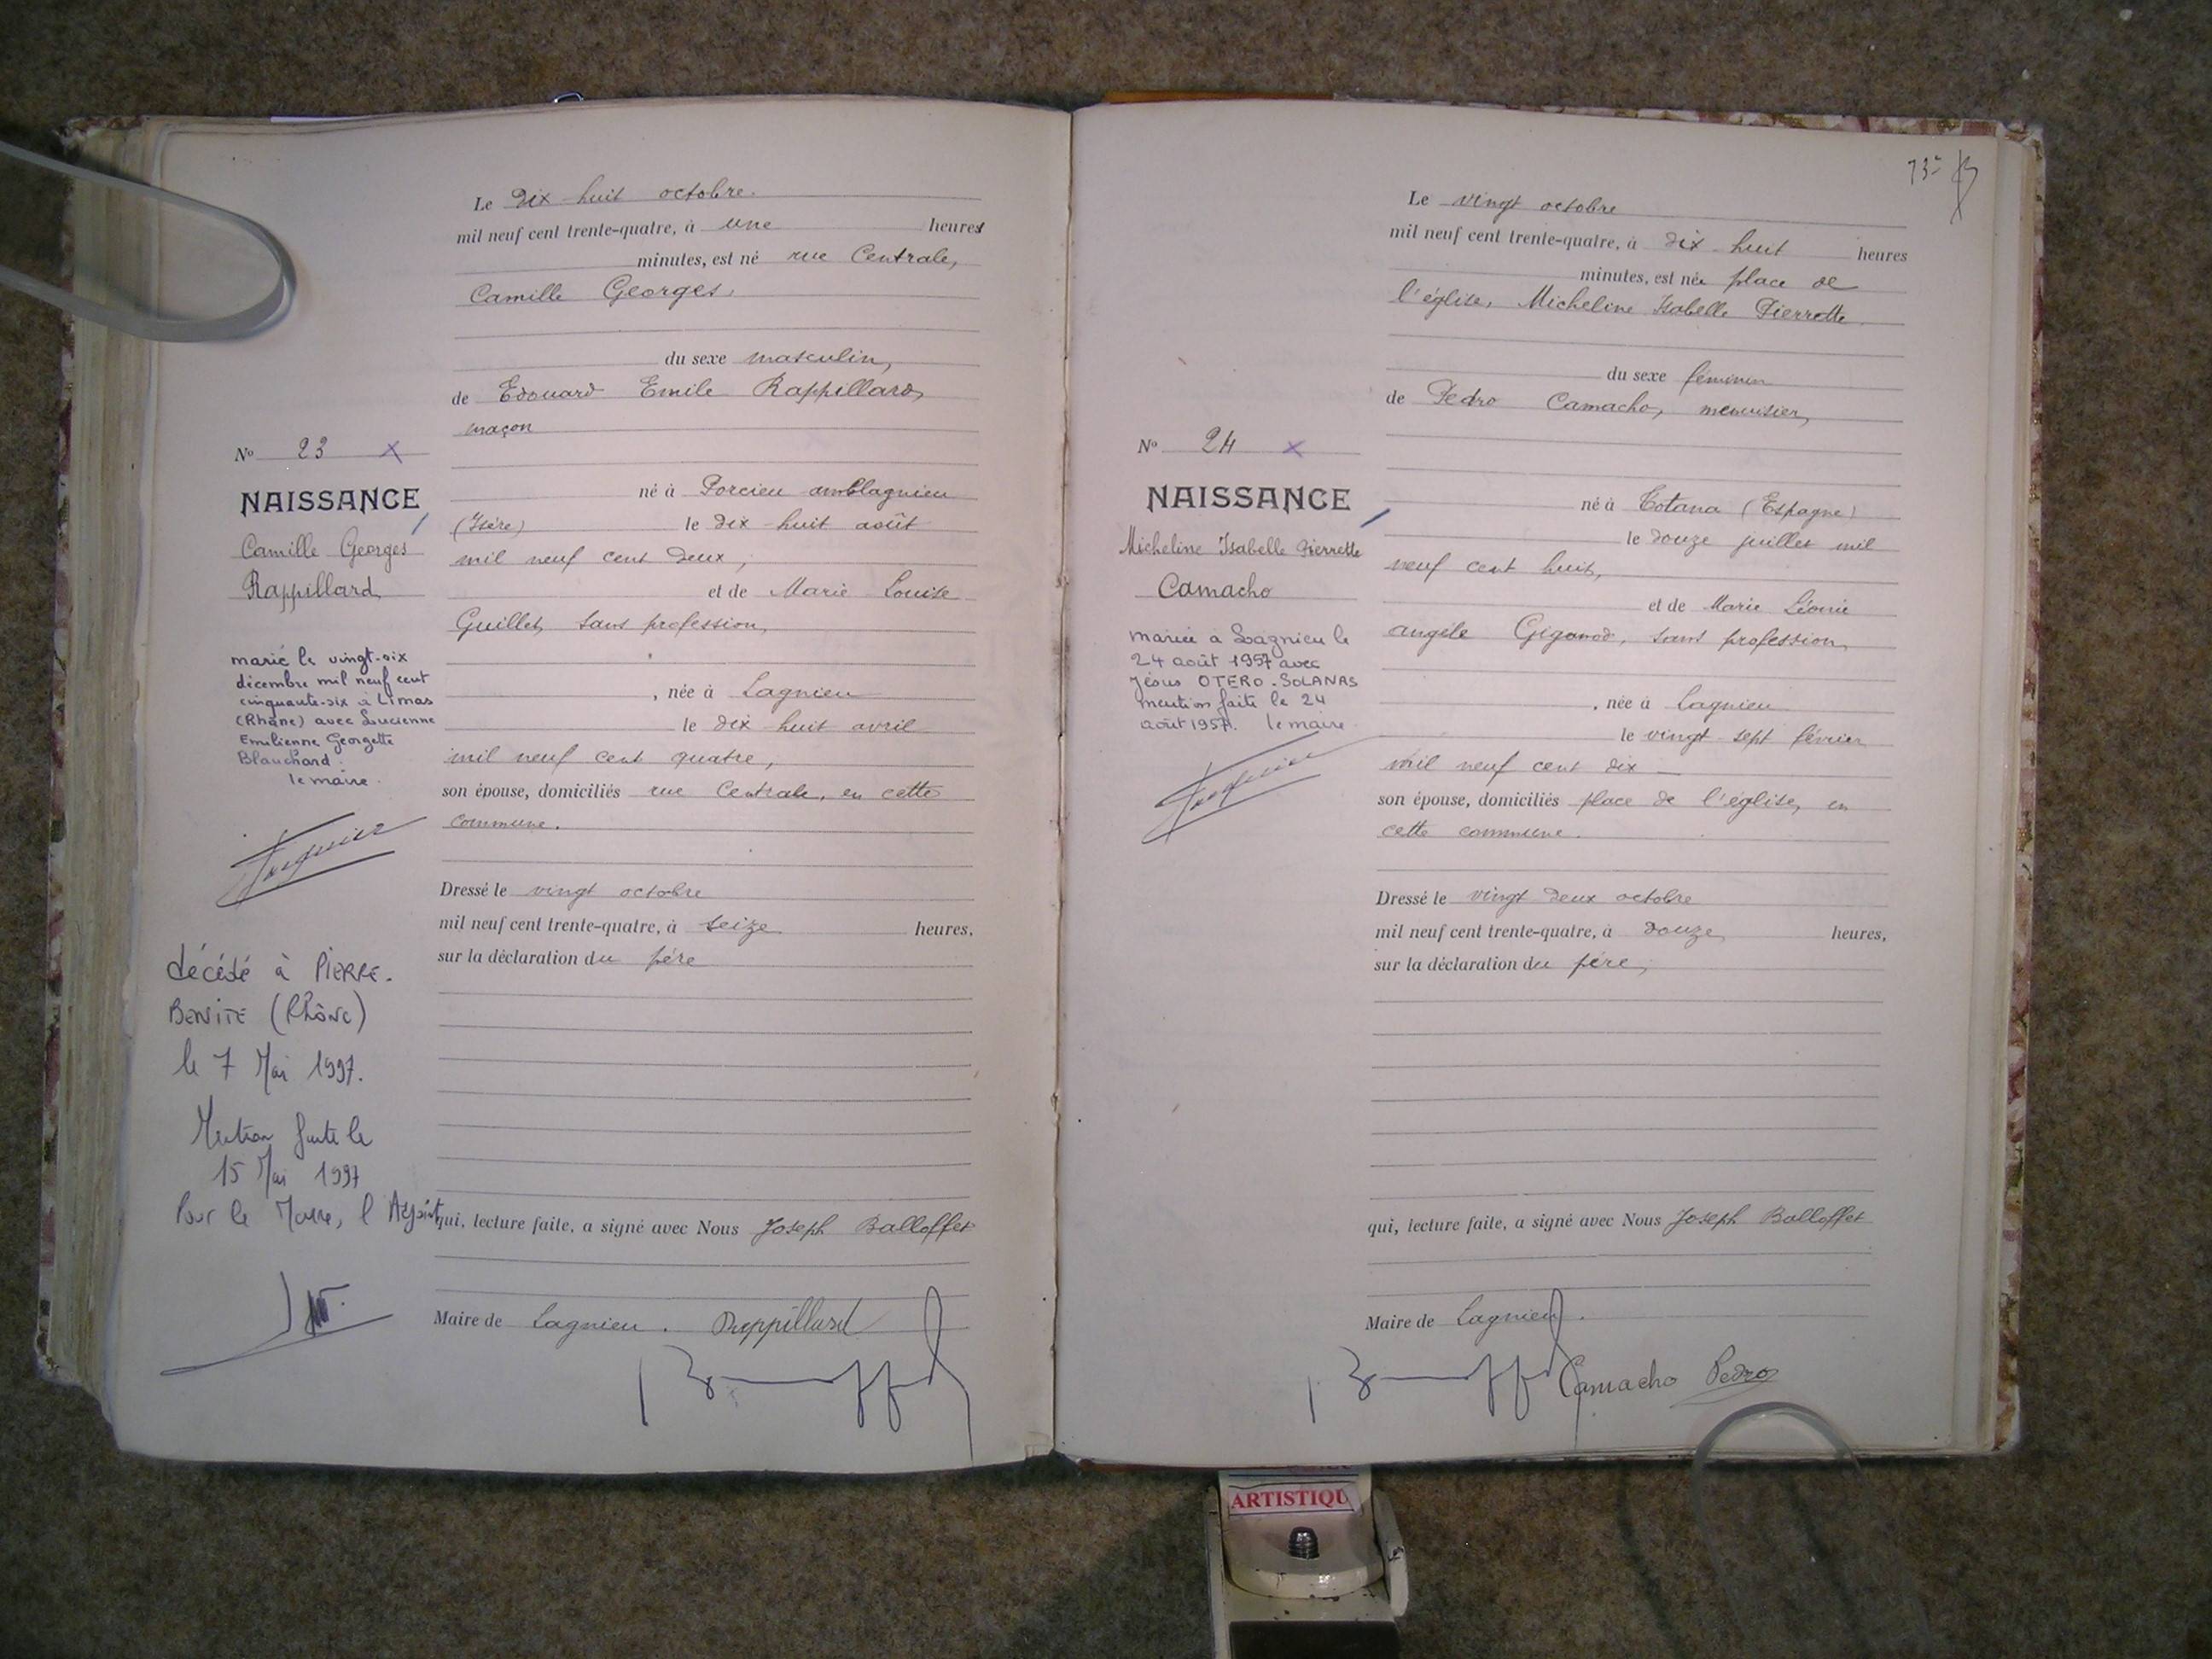 Le dix-huit octobre.
mil neuf cent trente-quatre, à une heure
minutes, est né rue Centrale,
Camille Georges,
du sexe masculin,
de Edouard Emile Rappillard,
maçon
né à Porcieu amblagnieu
(Isère) le dix-huit août
mil neuf cent deux,
et de Marie Louise
Guillet, sans profession,
, née à Lagnieu
le dix-huit avril
mil neuf cent quatre,
son épouse, domiciliés rue Centrale, en cette
commune.
Dressé le vingt octobre
mil neuf cent trente-quatre, à seize heures,
sur la déclaration du père
qui, lecture faite, a signé avec Nous Joseph Balloffet
Maire de Lagnieu. Rappillard
No 23 X
NAISSANCE
Camille Georges
Rappillard
marié le vingt-six
décembre mil neuf cent
cinquante-six à Limas
(Rhône) avec Lucienne
Emilienne Georgette
Blanchard.
le maire.
décédé à PIERRE-
BENITE (Rhône)
le 7 Mai 1997.
Mention faite le
15 Mai 1997
Pour le Maire, l'Adjoint,
73
Le vingt octobre
mil neuf cent trente-quatre, à dix-huit heures
minutes, est née place de
l'église, Micheline Isabelle Pierrette.
du sexe féminin
de Pedro Camacho, menuisier,
né à Totana (Espagne)
le douze juillet mil
neuf cent huit,
et de Marie Léonie
angèle Giganod, sans profession,
, née à Lagnieu
le vingt-sept février
mil neuf cent dix
son épouse, domiciliés place de l'église, en
cette commune.
Dressé le vingt deux octobre
mil neuf cent trente-quatre, à douze heures,
sur la déclaration du père,
qui, lecture faite, a signé avec Nous Joseph Balloffet
Maire de Lagnieu.
Camacho Pedro
No 24 X
NAISSANCE
Micheline Isabelle Pierrette
Camacho
mariée à Lagnieu le
24 août 1957 avec
Jésus OTERO-SOLANAS
mention faite le 24
août 1957. le maire
ARTISTIQU